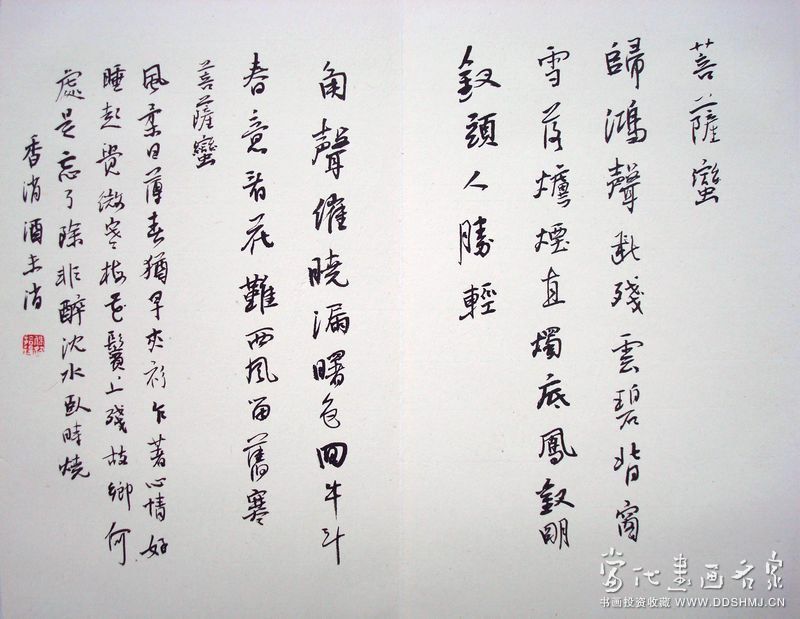 菩薩蠻
歸鴻聲斷殘雲碧背窗
雪落爐煙直燭底鳳釵明
釵頭人勝輕
角聲催曉漏曙色回牛斗
春意看花難西風留舊寒
菩薩蠻
風柔日薄春猶早夾衫乍著心情好
睡起覺微寒梅花鬢上殘故鄉何
處是忘了除非醉沈水臥時燒
香消酒未消
当代書画名家
书画投资收藏 WWW.DDSHMJ.CN